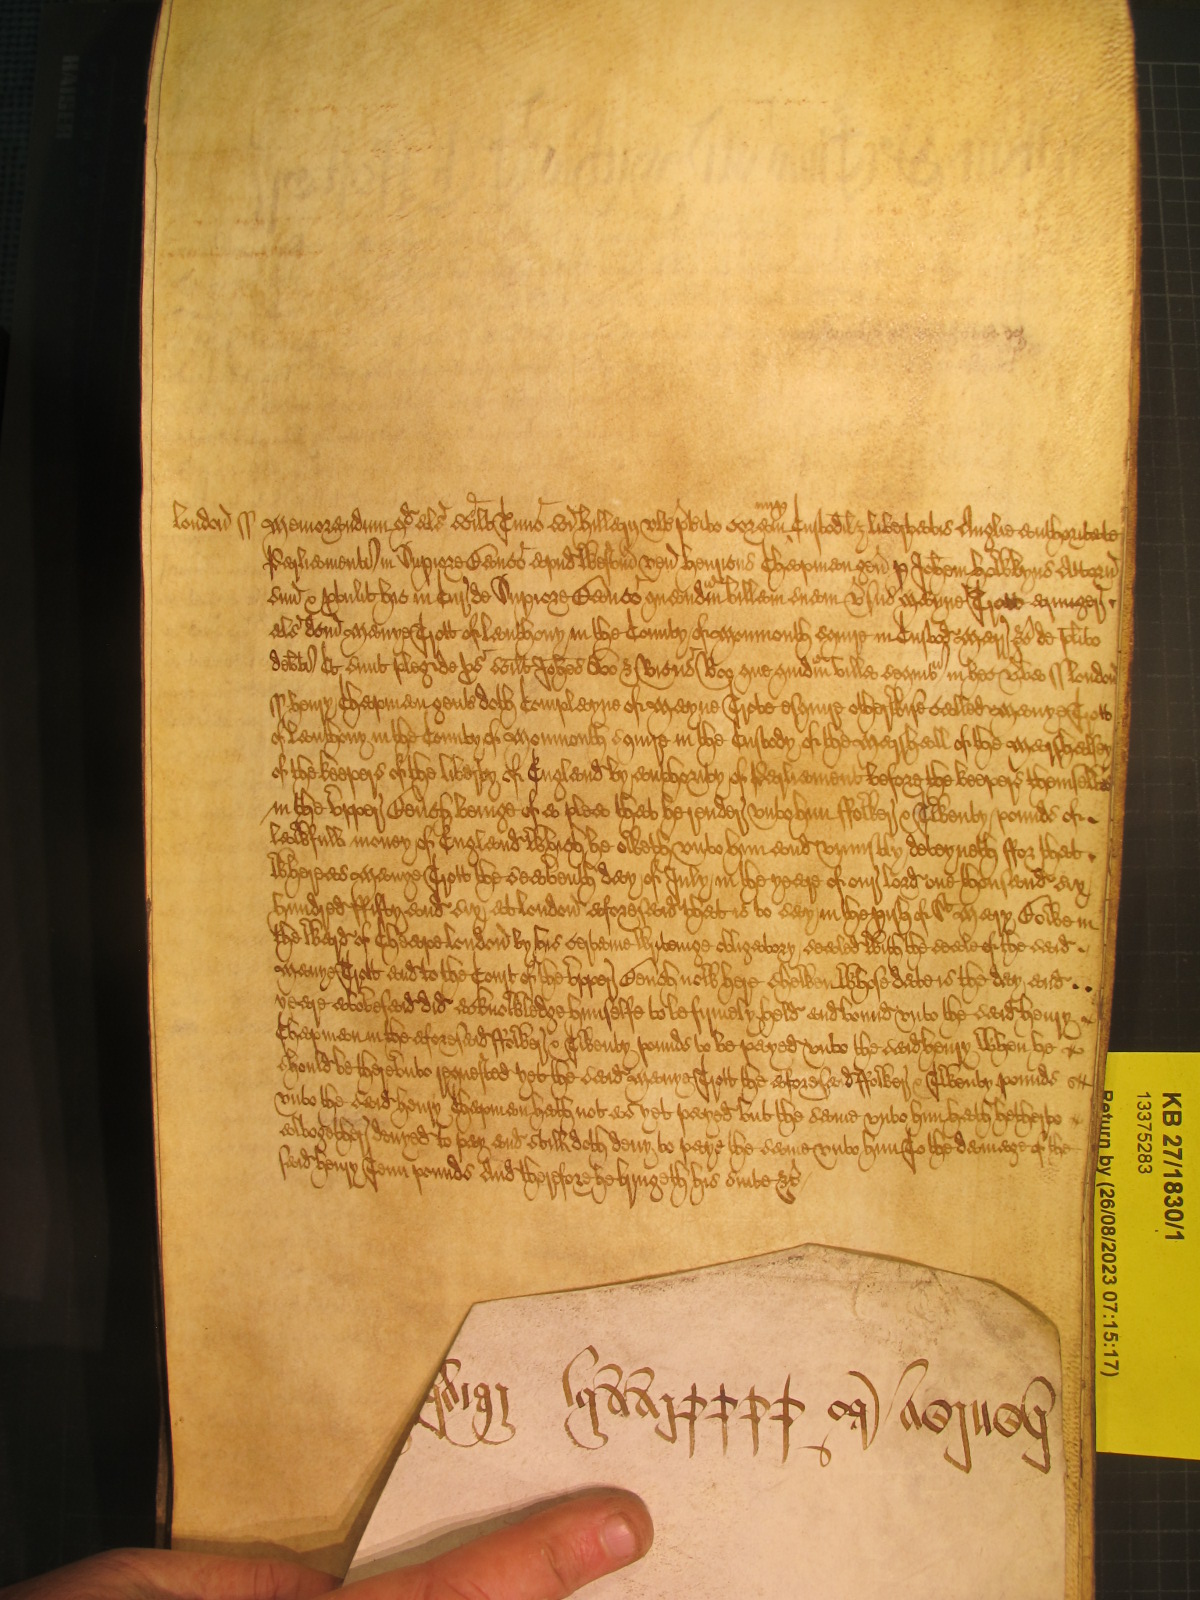 London ss Memorandum qd als scilt Tmio sci Hillarij ult pterito coram Custodibz libertatis Anglie authoritate
Parliamenti in Supiore Banco apud Westm ven Henricus Chapman gen p Johem Hawkyns Attorn
suu & ptulit hic in Cur de Supiore Banco quandam billam suam vsus Manye Trott armiger
als dom Manye Trott of Lanthony in the County of Monmouth esquire in Custod Marr &c de plito
debti Et sunt pleg de ps scilt Johes Doo & Ricus Roo que quidm billa sequit in hec vba ss London
ss Henry Chapman gent doth Complayne of Manye Trott esquire otherwise called Manye Trott
of Lanthony in the County of Monmouth esquire in the Custody of the Marshall of the Marshalsey
of the keepers of the liberty of England by authority of Parliament before the keepers themselves
in the Upper Bench beinge of a plea that he render unto him ffower & Twenty pounds of
lawfull money of England Which he oweth unto him and uniustly deteyneth ffor that
Whereas Manye Trott the seaventh day of July in the yeare of our Lord one thousand six
hundred ffifty and six at London aforesaid that is to say in the pish of St Mary Bowe in
the Ward of Cheape London by his certaine Writeinge obligatory sealed With the seale of the said
Manye Trott and to the Court of the Upper Bench now here shewen Whose date is the day and
yeare abovesaid did acknowledge himselfe to be firmely held and bound unto the said Henry
Chapman in the aforesaid ffower & Twenty pounds to be payed unto the said Henry When he
should be thereunto requested yet the said Manye Trott the aforesaid ffower & Twenty pounds
unto the said Henry Chapman hath not as yet payed but the same unto him hath hetherto
altogether denyed to pay and still doth deny to paye the same unto him To the damage of the
said Henry Tenn pounds And therefore he bringeth his suite &c
KB 27/1830/1
13375283
Return by (26/08/2023 07:15:17)